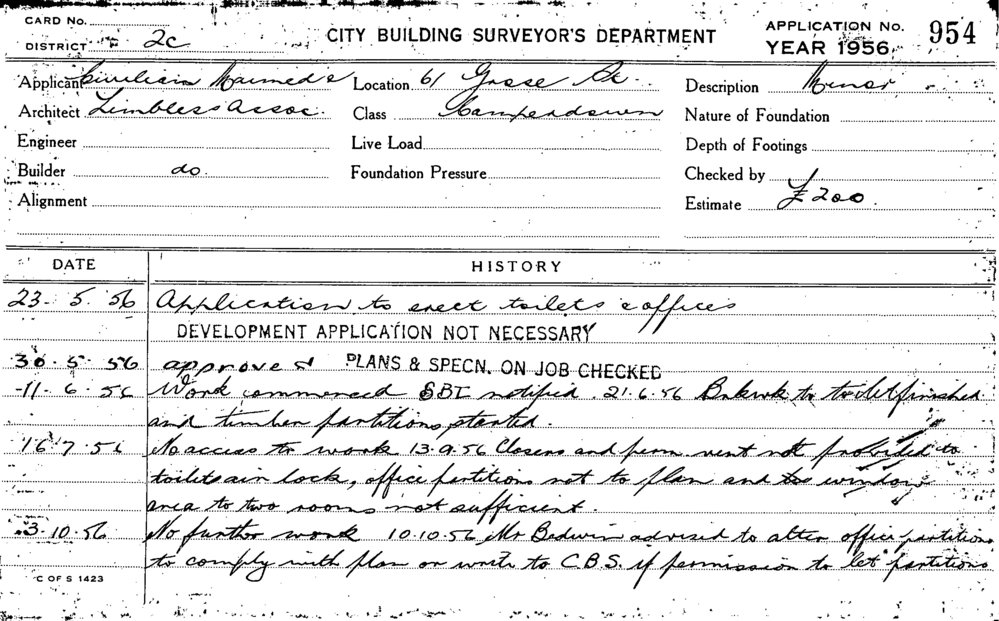 CARD No.
DISTRICT 2c
CITY BUILDING SURVEYOR'S DEPARTMENT
APPLICATION No. 954
YEAR 1956
Applicant Civilian Maimed &
Location 61 Gosse St.
Description Minor
Architect Limbless Assoc.
Class Camperdown
Nature of Foundation
Engineer
Live Load
Depth of Footings
Builder do.
Foundation Pressure
Checked by
Alignment
Estimate £200
DATE HISTORY
23. 5. 56 Application to erect toilets & offices
DEVELOPMENT APPLICATION NOT NECESSARY
30. 5. 56 approved PLANS & SPECN. ON JOB CHECKED
11. 6. 56 Work commenced SBI notified. 21.6.56 Brkwk to toilet finished
and timber partitions started.
16 7. 56 No access to work 13.9.56 Closers and perm vent not provided to
toilets air lock, office partitions not to plan and window
area to two rooms not sufficient.
3. 10. 56 No further work 10.10.56 Mr Bedwin advised to alter office partitions
to comply with plan or write to C.B.S. if permission to let partitions
C OF S 1423